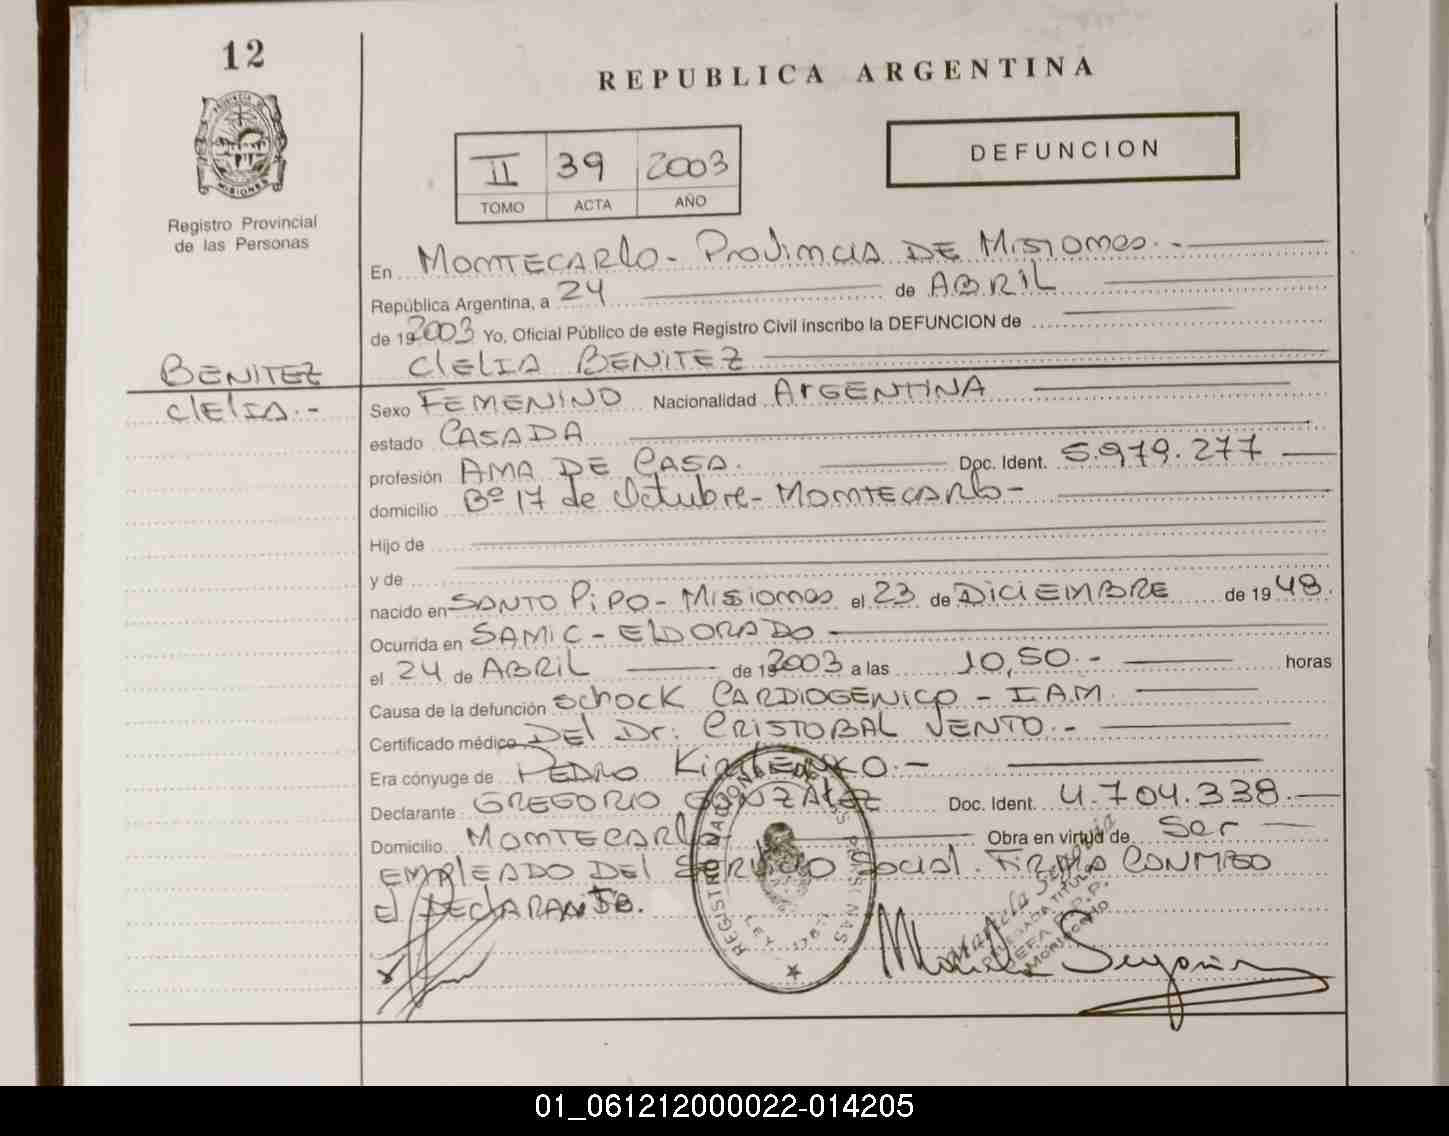 12
REPUBLICA ARGENTINA
PROVINCIA DE
MISIONES
Registro Provincial
de las Personas
II 39 2003
TOMO ACTA AÑO
DEFUNCION
En MONTECARLO - PROVINCIA DE MISIONES. -
República Argentina, a 24 de ABRIL
de 192003 Yo, Oficial Público de este Registro Civil inscribo la DEFUNCION de
BENITEZ
CLELIA. -
CLELIA BENITEZ
Sexo FEMENINO Nacionalidad ARGENTINA
estado CASADA
profesión AMA DE CASA. Doc. Ident. 5.979.277
domicilio Bº 17 de Octubre - MONTECARLO -
Hijo de
y de
nacido en SANTO PIPO - MISIONES el 23 de DICIEMBRE de 1948.
Ocurrida en SAMIC - ELDORADO
el 24 de ABRIL de 192003 a las 10,50. - horas
Causa de la defunción SCHOCK CARDIOGENICO - I.A.M.
Certificado médico DEL Dr. CRISTOBAL VENTO. -
Era cónyuge de PEDRO. -
Declarante GREGORIO GONZALEZ Doc. Ident. 4.704.338. -
Domicilio MONTECARLO Obra en virtud de Ser
EMPLEADO DEL SERVICIO Social. FIRMA CONMIGO
el DECLARANTE.
REGISTRO NACIONAL DE LAS PERSONAS
LEY
DELEGADA TITULAR
01_061212000022-014205